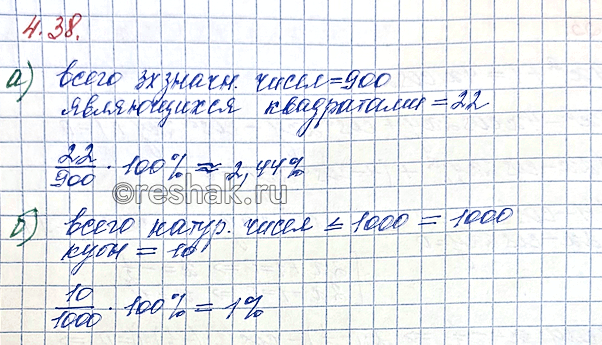 4.38.
а) всего 3х значн. чисел = 900
являющихся квадратами = 22
22/900 · 100% ≈ 2,44%
©reshak.ru
б) всего натур. чисел ≤ 1000 = 1000
кубы = 10
10/1000 · 100% = 1%